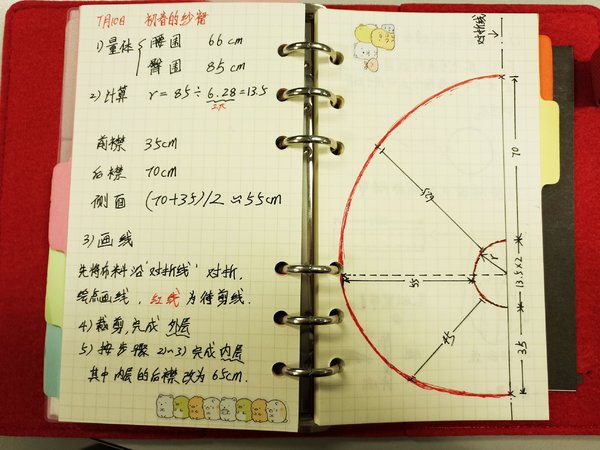 7月10日 初音的纱裙
1) 量体 { 腰围 66cm
臀围 85cm
2) 计算 r=85÷6.28=13.5
2π
前襟 35cm
后襟 70cm
侧面 (70+35)/2≈55cm
3) 画线
先将布料沿“对折线”对折,
绘点画线, 红线为待剪线.
4) 裁剪,完成外层
5) 按步骤2)~3)完成内层
其中内层的后襟改为65cm.
对折线
70
55
r
13.5×2
55
35